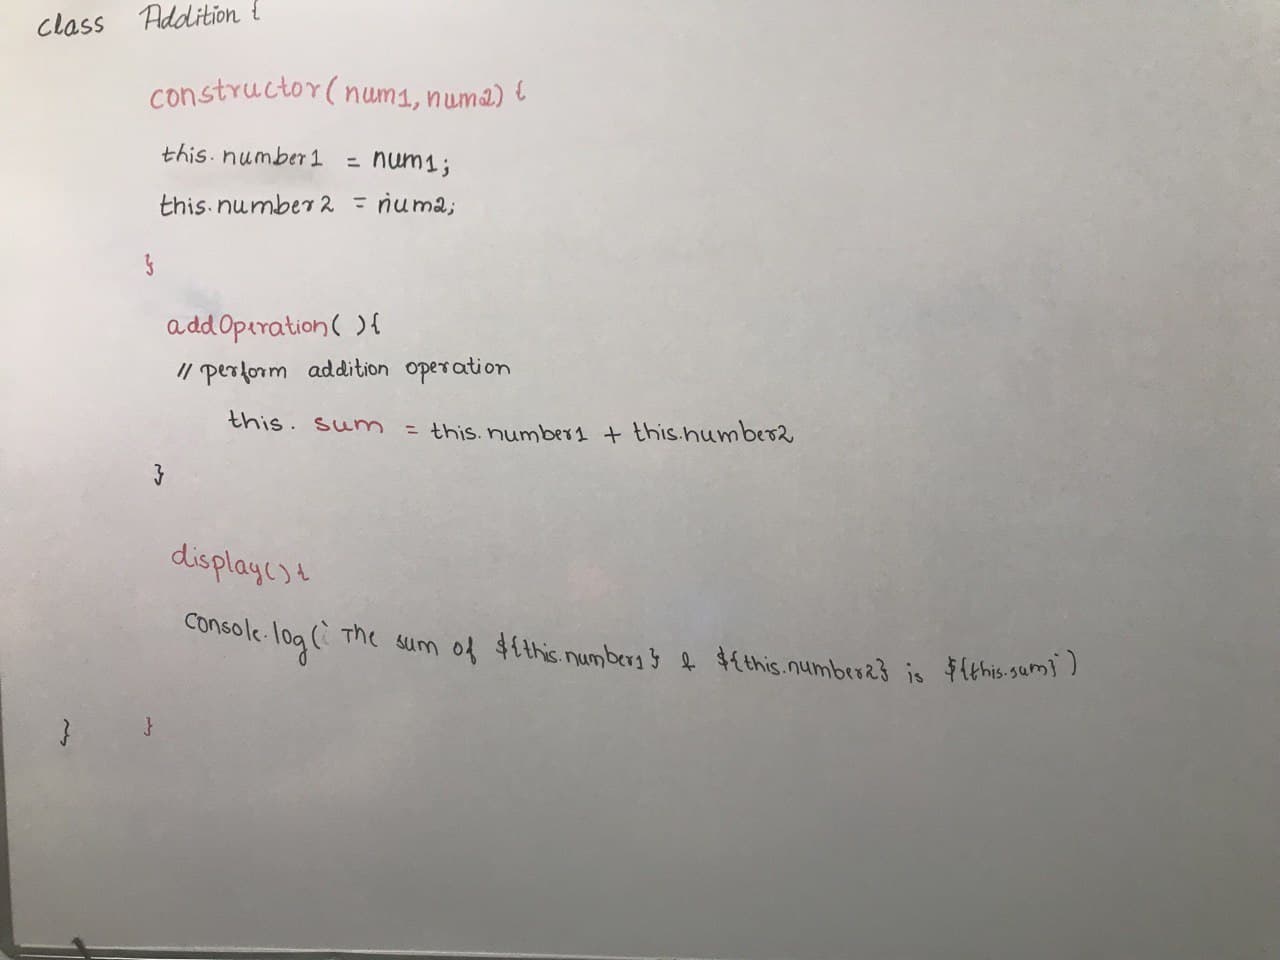 class Addition {
constructor(num1, num2) {
this.number1 = num1;
this.number2 = num2;
}
addOperation( ){
// perform addition operation
this. sum = this.number1 + this.number2
}
display() {
console.log(` The sum of ${this.number1} & ${this.number2} is ${this.sum}`)
} }